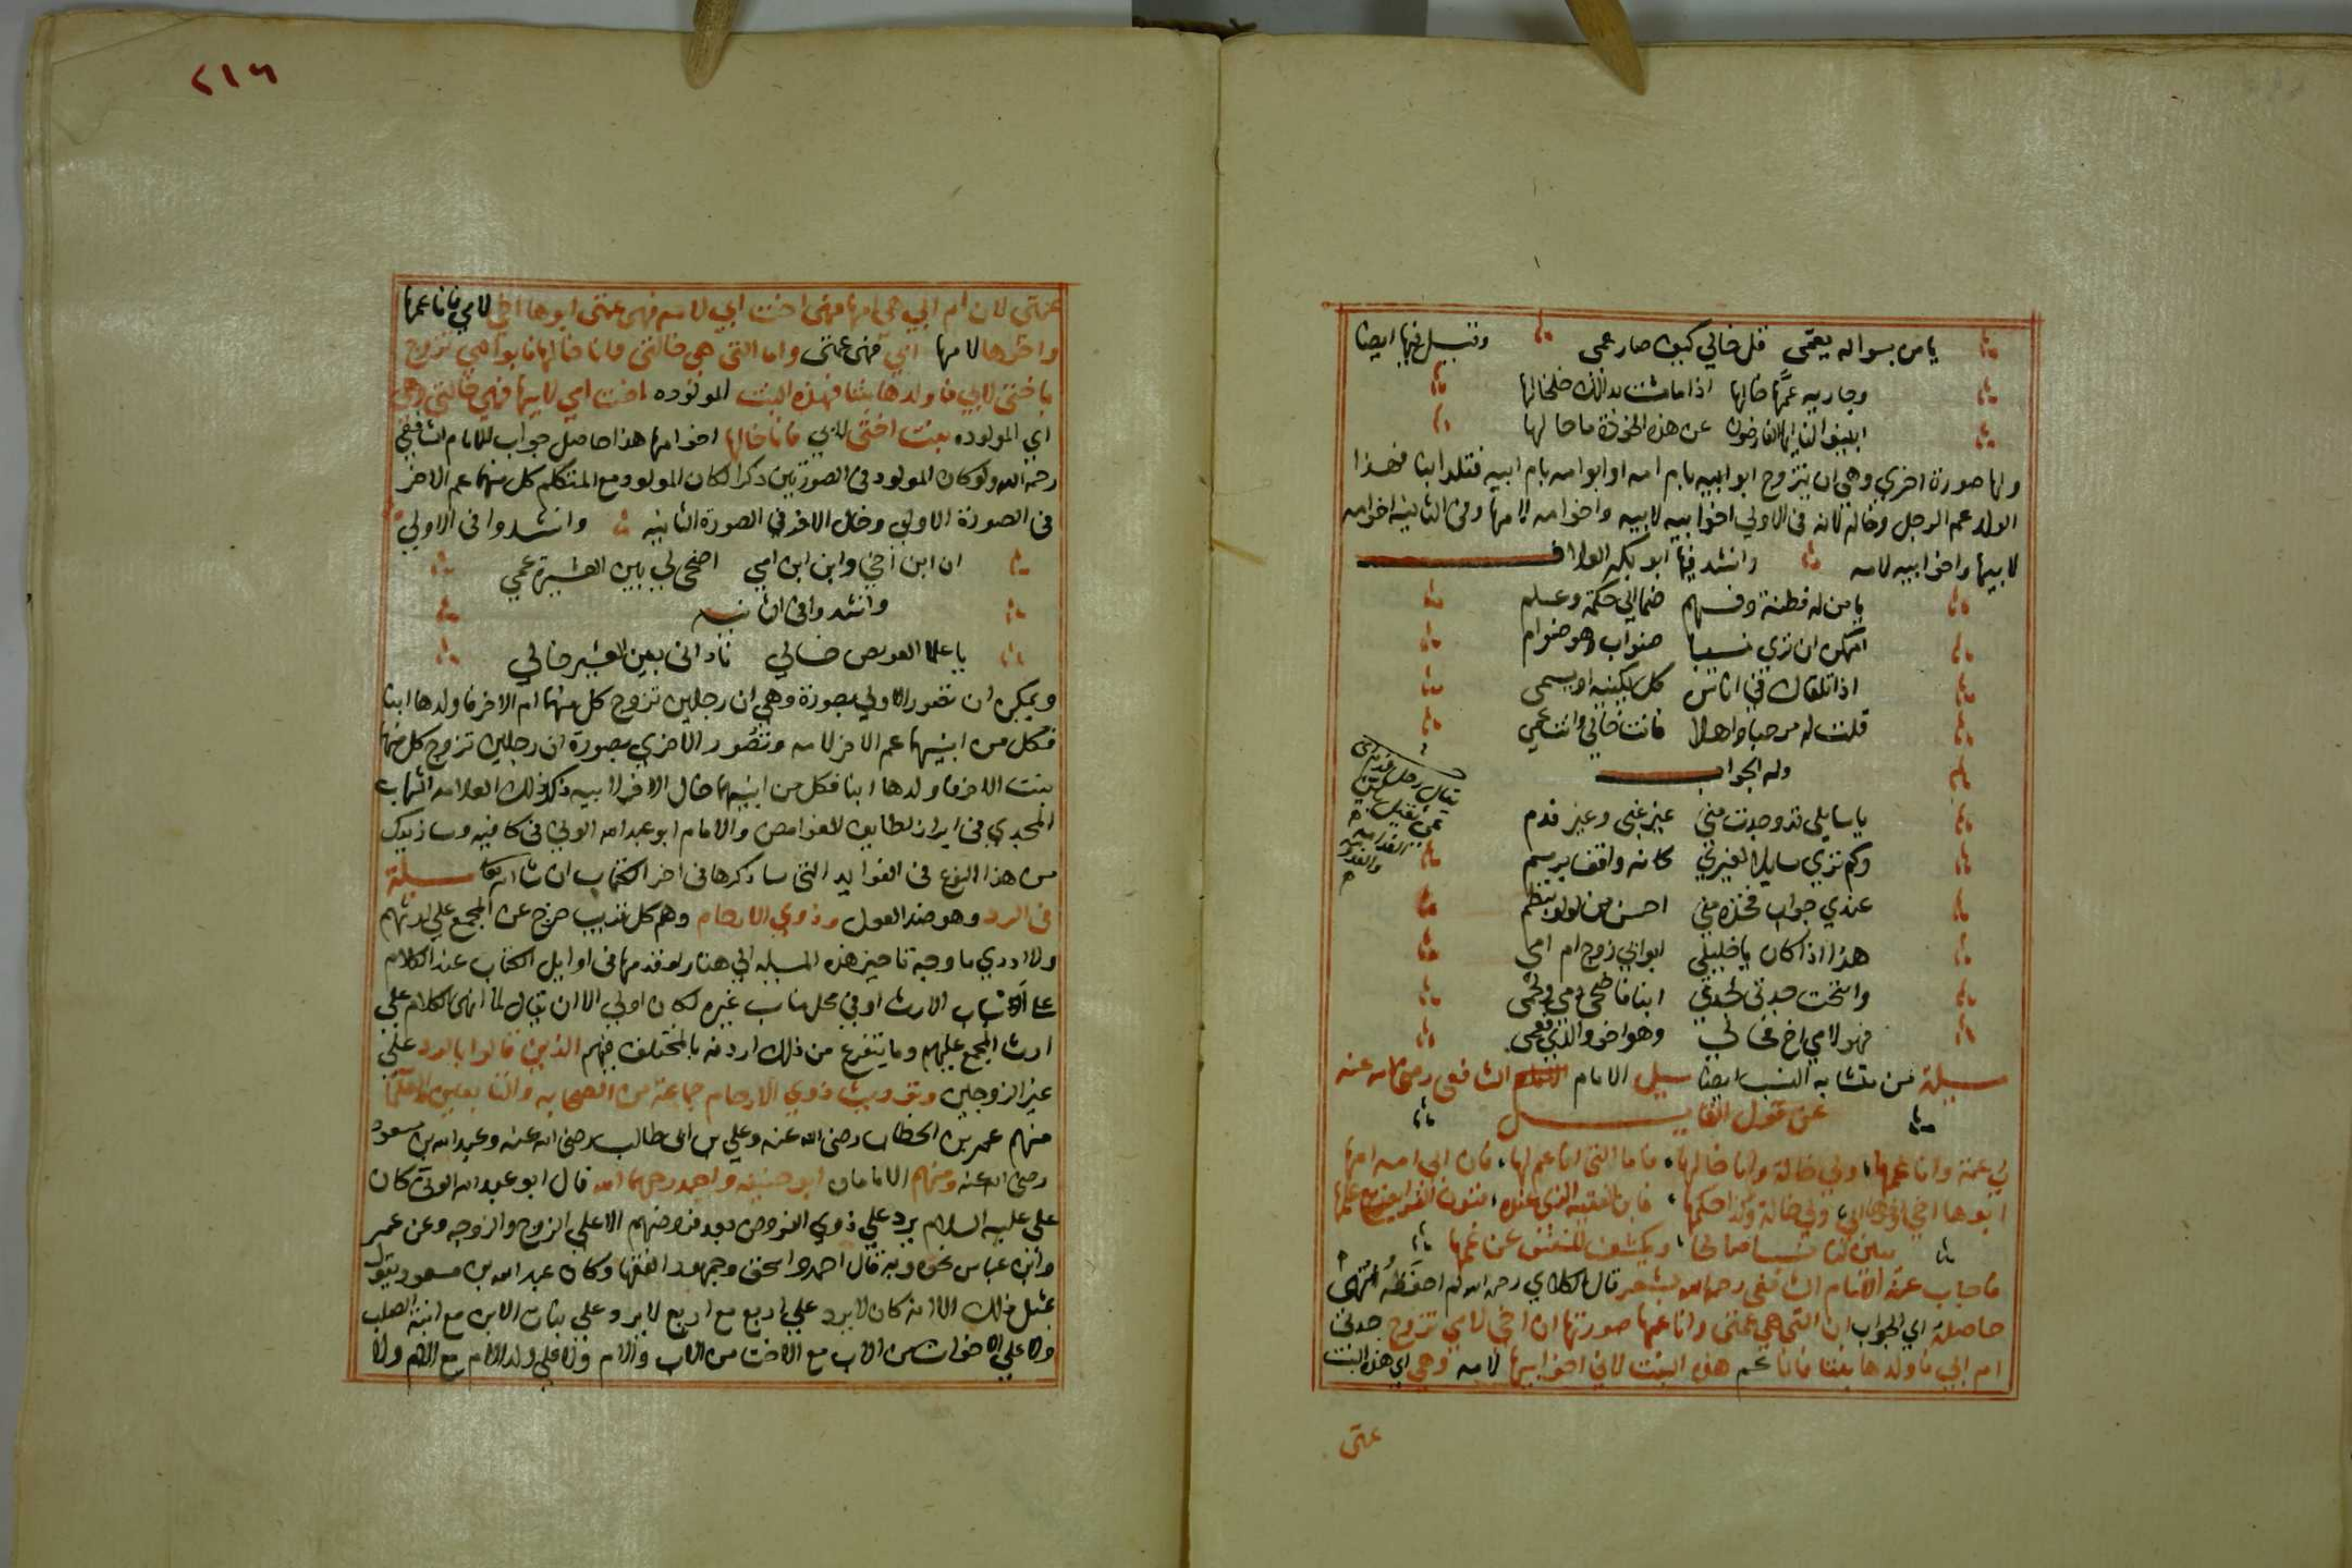 يا من بسواله يعمى قل خالي كيف صار عمى وقيل فيها ايضا
وجاريه عمها خالها اذا ما مشت بدا لك خلخالها
ايها الفارضون عن هذه الخودة ما حالها
ولها صورة اخري وهي ان يتزوج ابو ابيه بام امه او ابو امه بام ابيه فتلد ابنا فهذا
الولد عم الرجل وخاله لانه في الاولي اخو ابيه لابيه واخو امه لامها وفي الثانيه اخو امه
لابيها واخو ابيه لامه وانشد فيها ابو بكر العلاف
يا من له فطنة وفهم ضما الي حكمة وعلم
ايمكن ان تري نسيبا صنو اب وهو صنو ام
اذا تلقاك في اناس كل يكنيه او يسمى
قلت له مرحبا واهلا فانت خالي وانت عمي
وله الجواب
يا سايلي قد وجدت مني غير غبى وغير فدم
وكم تري سايلا لغيري كانه واقف برسم
عندي جواب فخذه مني احسن من لولو بنظم
هذا اذا كان يا خليلي ابو ابي زوج ام امى
وانتجت جدتي لجدي ابنا فاضحى دمي ولحمى
فهو لامي اخ فخالي وهو اخو والدي فعمى
مسيلة من متشابه النسب ايضا سيل الامام الشافعى رضي الله عنه
عن قول القايل
لي عمة وانا عمها، ولي خالة وانا خالها، فاما التي انا عم لها، فان ابي امه امها
ابوها اخي واخوها ابي، ولي خالة وكذا حكمها، فاين الفقيه الذي عنده، فنون الفرايض مع علمها
يبين لنا نسبا صالحا، ويكشف للنفس عن غمها
فاجاب عنه الامام الشافعى رحمه الله بشعر قال الكلاي رحمه الله لم احفظه انتهى
حاصله اي الجواب ان التي هي عمتى وانا عمها صورتها ان اخي لامي تزوج جدتى
ام ابي فاولدها بنتا فانا عم هذه البنت لاني اخو ابيها لامه وهي اي هذه البنت
عمتى
٢١٦
عمتى لان ام ابي هي امها فهى اخت ابي لامه فهى عمتى ابوها اخي لامي فانا عمها
واخوها لامها ابي فهى عمتى واما التى هي خالتى وانا خالها فابو امي تزوج
باختى لابي فاولدها بنتا فهذه البنت المولوده اخت امي لابيها فهي خالتي وهي
اي المولوده بنت اختى لابي فانا خالها اخو امها هذا حاصل جواب للامام الشافعى
رحمه الله ولو كان المولود في الصورتين ذكرا لكان المولود مع المتكلم كل منهما عم الاخر
في الصورة الاولي وخال الاخر في الصورة الثانيه وانشدوا في الاولي
ان ابن اخي وابن ابن امي اضحى لي بين العشيرة عمي
وانشدوا في الثانيه
يا علما العويص خالي نادانى بين العشير خالي
ويمكن ان تصور الاولي بصورة وهي ان رجلين تزوج كل منهما ام الاخر فاولدها ابنا
فكل من ابنيهما عم الاخر لامه وتصور الاخري بصورة ان رجلين تزوج كل منهما
بنت الاخر فاولدها ابنا فكل من ابنيهما خال الاخر لابيه ذكر ذلك العلامه الشهاب
المجدي في ابراز لطايف الغوامض والامام ابو عبد الله الوني في كافيه وسازيدك
من هذا النوع في الفوايد التى ساذكرها في اخر الكتاب ان شا الله تعالى مسيلة
في الرد وهو ضد العول وذوي الارحام وهم كل قريب خرج عن المجمع علي ارثهم
ولا ادري ما وجه تاخير هذه المسيله الي هنا ولو قدمها في اوايل الكتاب عند الكلام
على اسباب الارث او في محل مناسب غيره لكان اولي الا ان يقال لما انهى الكلام علي
ارث المجمع عليهم وما يتفرع من ذلك اردفه بالمختلف فيهم الذين قالوا بالرد علي
غير الزوجين وتوريث ذوي الارحام جماعة من الصحابه والتابعين
منهم عمر بن الخطاب رضى الله عنه وعلي بن ابي طالب رضى الله عنه وعبد الله بن مسعود
رضى الله عنه ومنهم الامامان ابو حنيفه واحمد رحمهما الله قال ابو عبد الله الوني كان
على عليه السلام يرد علي ذوي الفروض بعد فروضهم الا علي الزوج والزوجه وعن عمر
وابن عباس نحوه وبه قال احمد واسحق وجمهور الفقها وكان عبد الله بن مسعود يقول
بمثل ذلك الا انه كان لا يرد علي اربع مع اربع لا يرد علي بنات الابن مع ابنة الصلب
ولا علي الاخوات من الاب مع الاخت من الاب والام ولا علي ولد الام مع الام ولا